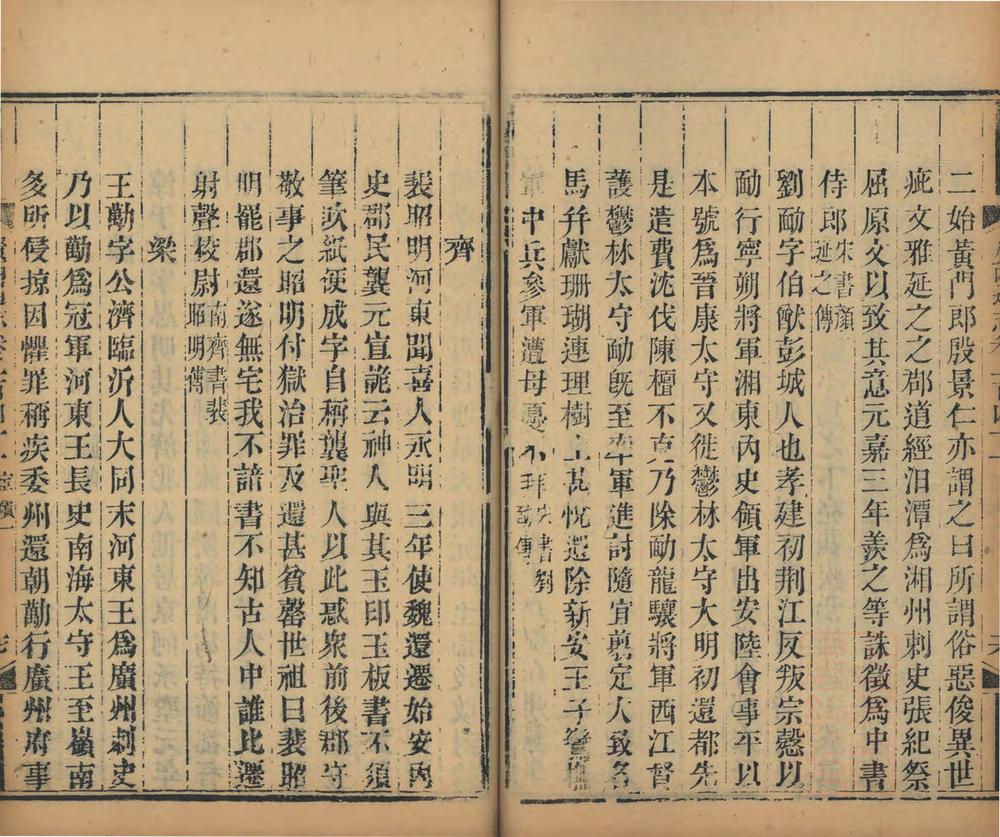 二始黃門郎殷景仁亦謂之曰所謂俗惡俊異世
疵文雅延之之郡道經汨潭爲湘州刺史張紀祭
屈原文以致其意元嘉三年羨之等誅徵爲中書
侍郎宋書顏延之傳
劉勔字伯猷彭城人也孝建初荆江反叛宗慤以
勔行寧朔將軍湘東內史領軍出安陸會事平以
本號爲晉康太守又徙鬱林太守大明初還都先
是遣費沈伐陳檀不克乃除勔龍驤將軍西江督
護鬱林太守勔旣至率軍進討隨宜翦定大致名
馬幷獻珊瑚連理樹上甚悅還除新安王子鸞撫
軍中兵參軍遭母憂不拜宋書劉勔傳
齊
裴昭明河東聞喜人永明三年使魏還遷始安內
史郡民龔元宜詭云神人與其玉印玉板書不須
筆吹紙便成字自稱龔聖人以此惑衆前後郡守
敬事之昭明付獄治罪及還甚貧罄世祖曰裴昭
明罷郡還遂無宅我不諳書不知古人中誰比遷
射聲校尉南齊書裴昭明傳
梁
王勱字公濟臨沂人大同末河東王爲廣州刺史
乃以勱爲冠軍河東王長史南海太守王至嶺南
多所侵掠因懼罪稱疾委州還朝勱行廣州府事